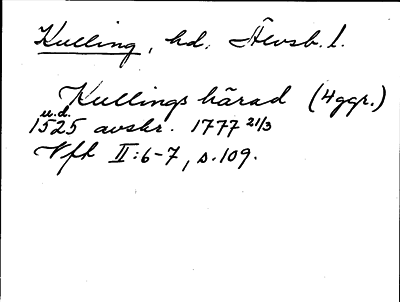 Kulling, hd. Älvsb. l.
Kullings härad (4 ggr.)
u.d.
1525 avskr. 1777 21/3
Vfh II:6-7, s.109.